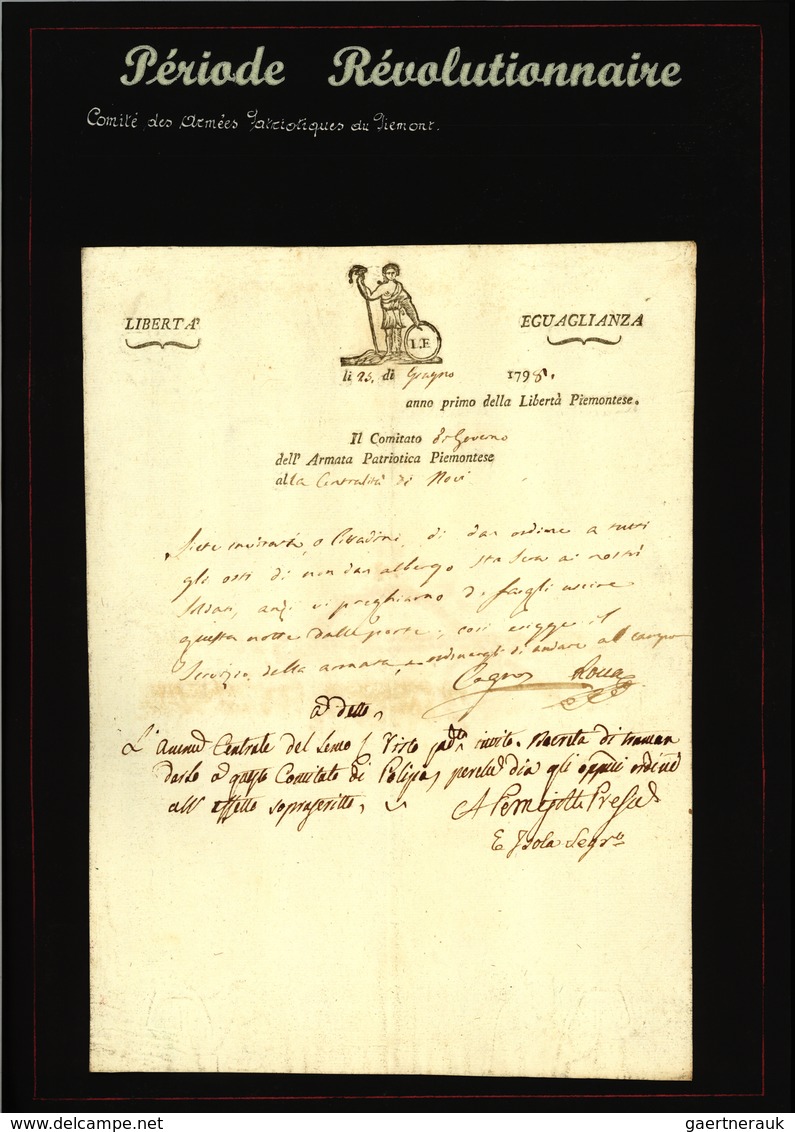 Période Révolutionnaire
Comité des Armées Patriotiques du Piemont.
LIBERTA'
EGUAGLIANZA
L.E
li 25. di Giugno 1798.
anno primo della Libertà Piemontese.
Il Comitato di Governo
dell' Armata Patriotica Piemontese
alla Centralità di Novi
Siete invitati, o Cittadini, di dar ordine a tutti
gli osti di non dar albergo sta sera ai nostri
Soldati, anzi vi preghiamo di fargli uscire
questa notte dalle porte, così esigge il
Servizio della armata, e ordinargli di andare al campo
Rocca
a detto
L' Centrale del Lemo Visto invito. Decreta di traman
darlo a questo Comitato di Polizia, perchè dia gli oppni ordini
all' effetto soprascritto.
Presid
E Isola Segr.o
gaertnerauk